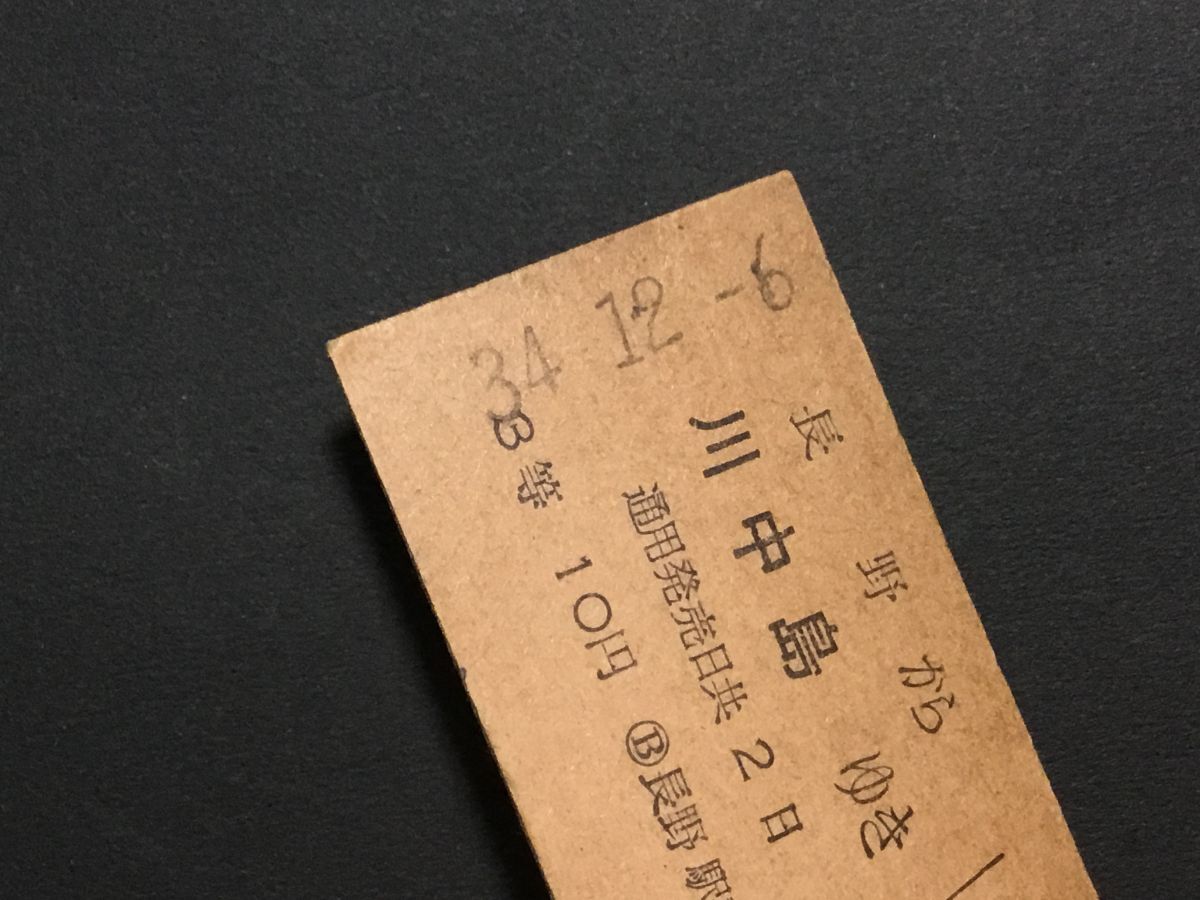 34 12 -6
長野から
川中島ゆき
通用発売日共2日
3等 10円 Ⓑ長野駅